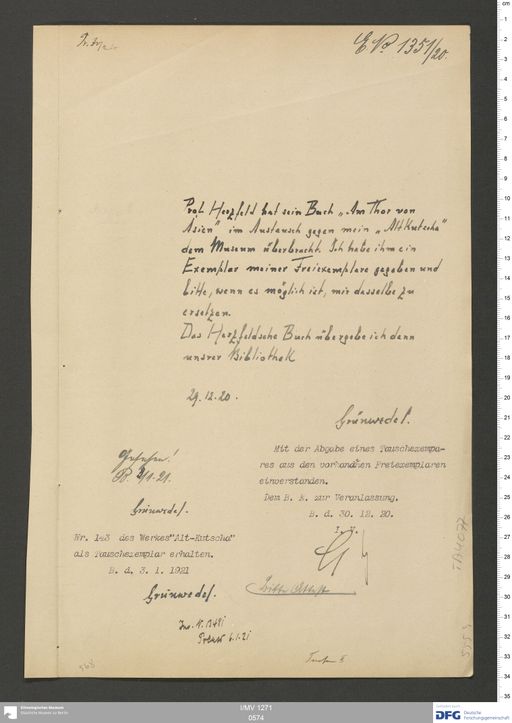 E No 1351/20.
Prof. Herzfeld hat sein Buch „Am Thor von
Asien" im Austausch gegen mein „Altkutscha"
dem Museum überbracht. Ich habe ihm ein
Exemplar meiner Freiexemplare gegeben und
bitte, wenn es möglich ist, mir dasselbe zu
ersetzen.
Das Herzfeldsche Buch übergebe ich dann
unsrer Bibliothek
29.12.20.
Grünwedel.
Mit der Abgabe eines Tauschexempla-
res aus den vorhandnen Freiexemplaren
einverstanden.
Dem B. K. zur Veranlassung.
B. d. 30. 12. 20.
I. V.
Gesehen!
Grünwedel.
Nr. 143 des Werkes "Alt-Kutscha"
als Tauschexemplar erhalten.
B. d. 3. 1. 1921
Grünwedel.
6.1.21
568
TA 4077
Ethnologisches Museum
Staatliche Museen zu Berlin
I/MV 1271
0574
Gefördert durch
DFG Deutsche
Forschungsgemeinschaft